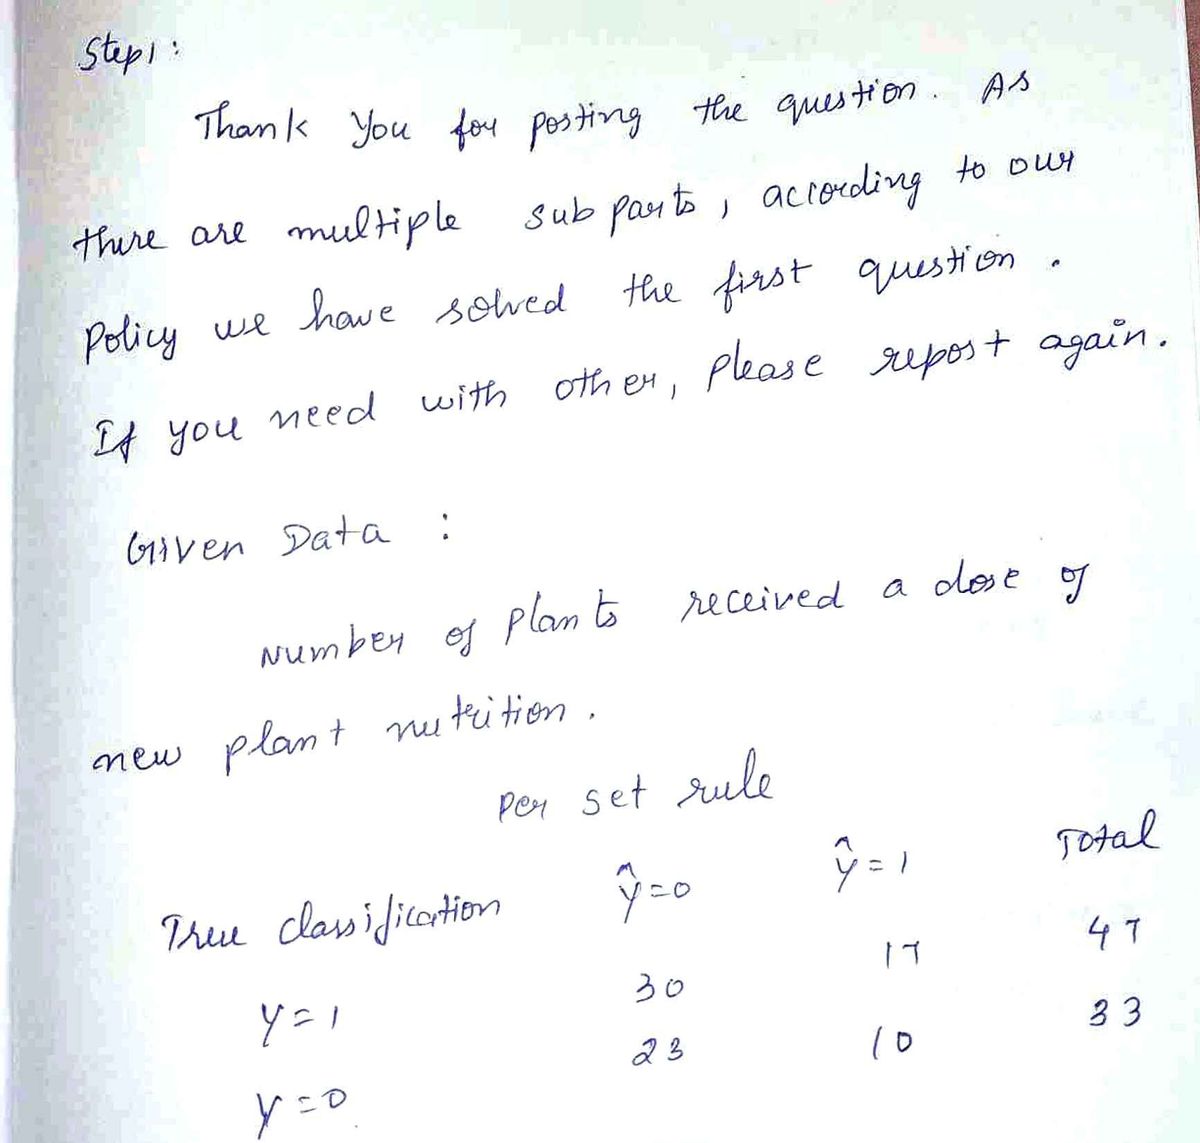 Step1:
Thank You for posting the question. As
there are multiple sub parts, according to our
Policy we have solved the first question.
If you need with other, Please repost again.
Given Data :
Number of Plants received a dose of
new plant nutrition.
Per set rule
True classification ŷ=0 ŷ=1 Total
y=1 30 17 47
y=0 23 10 33